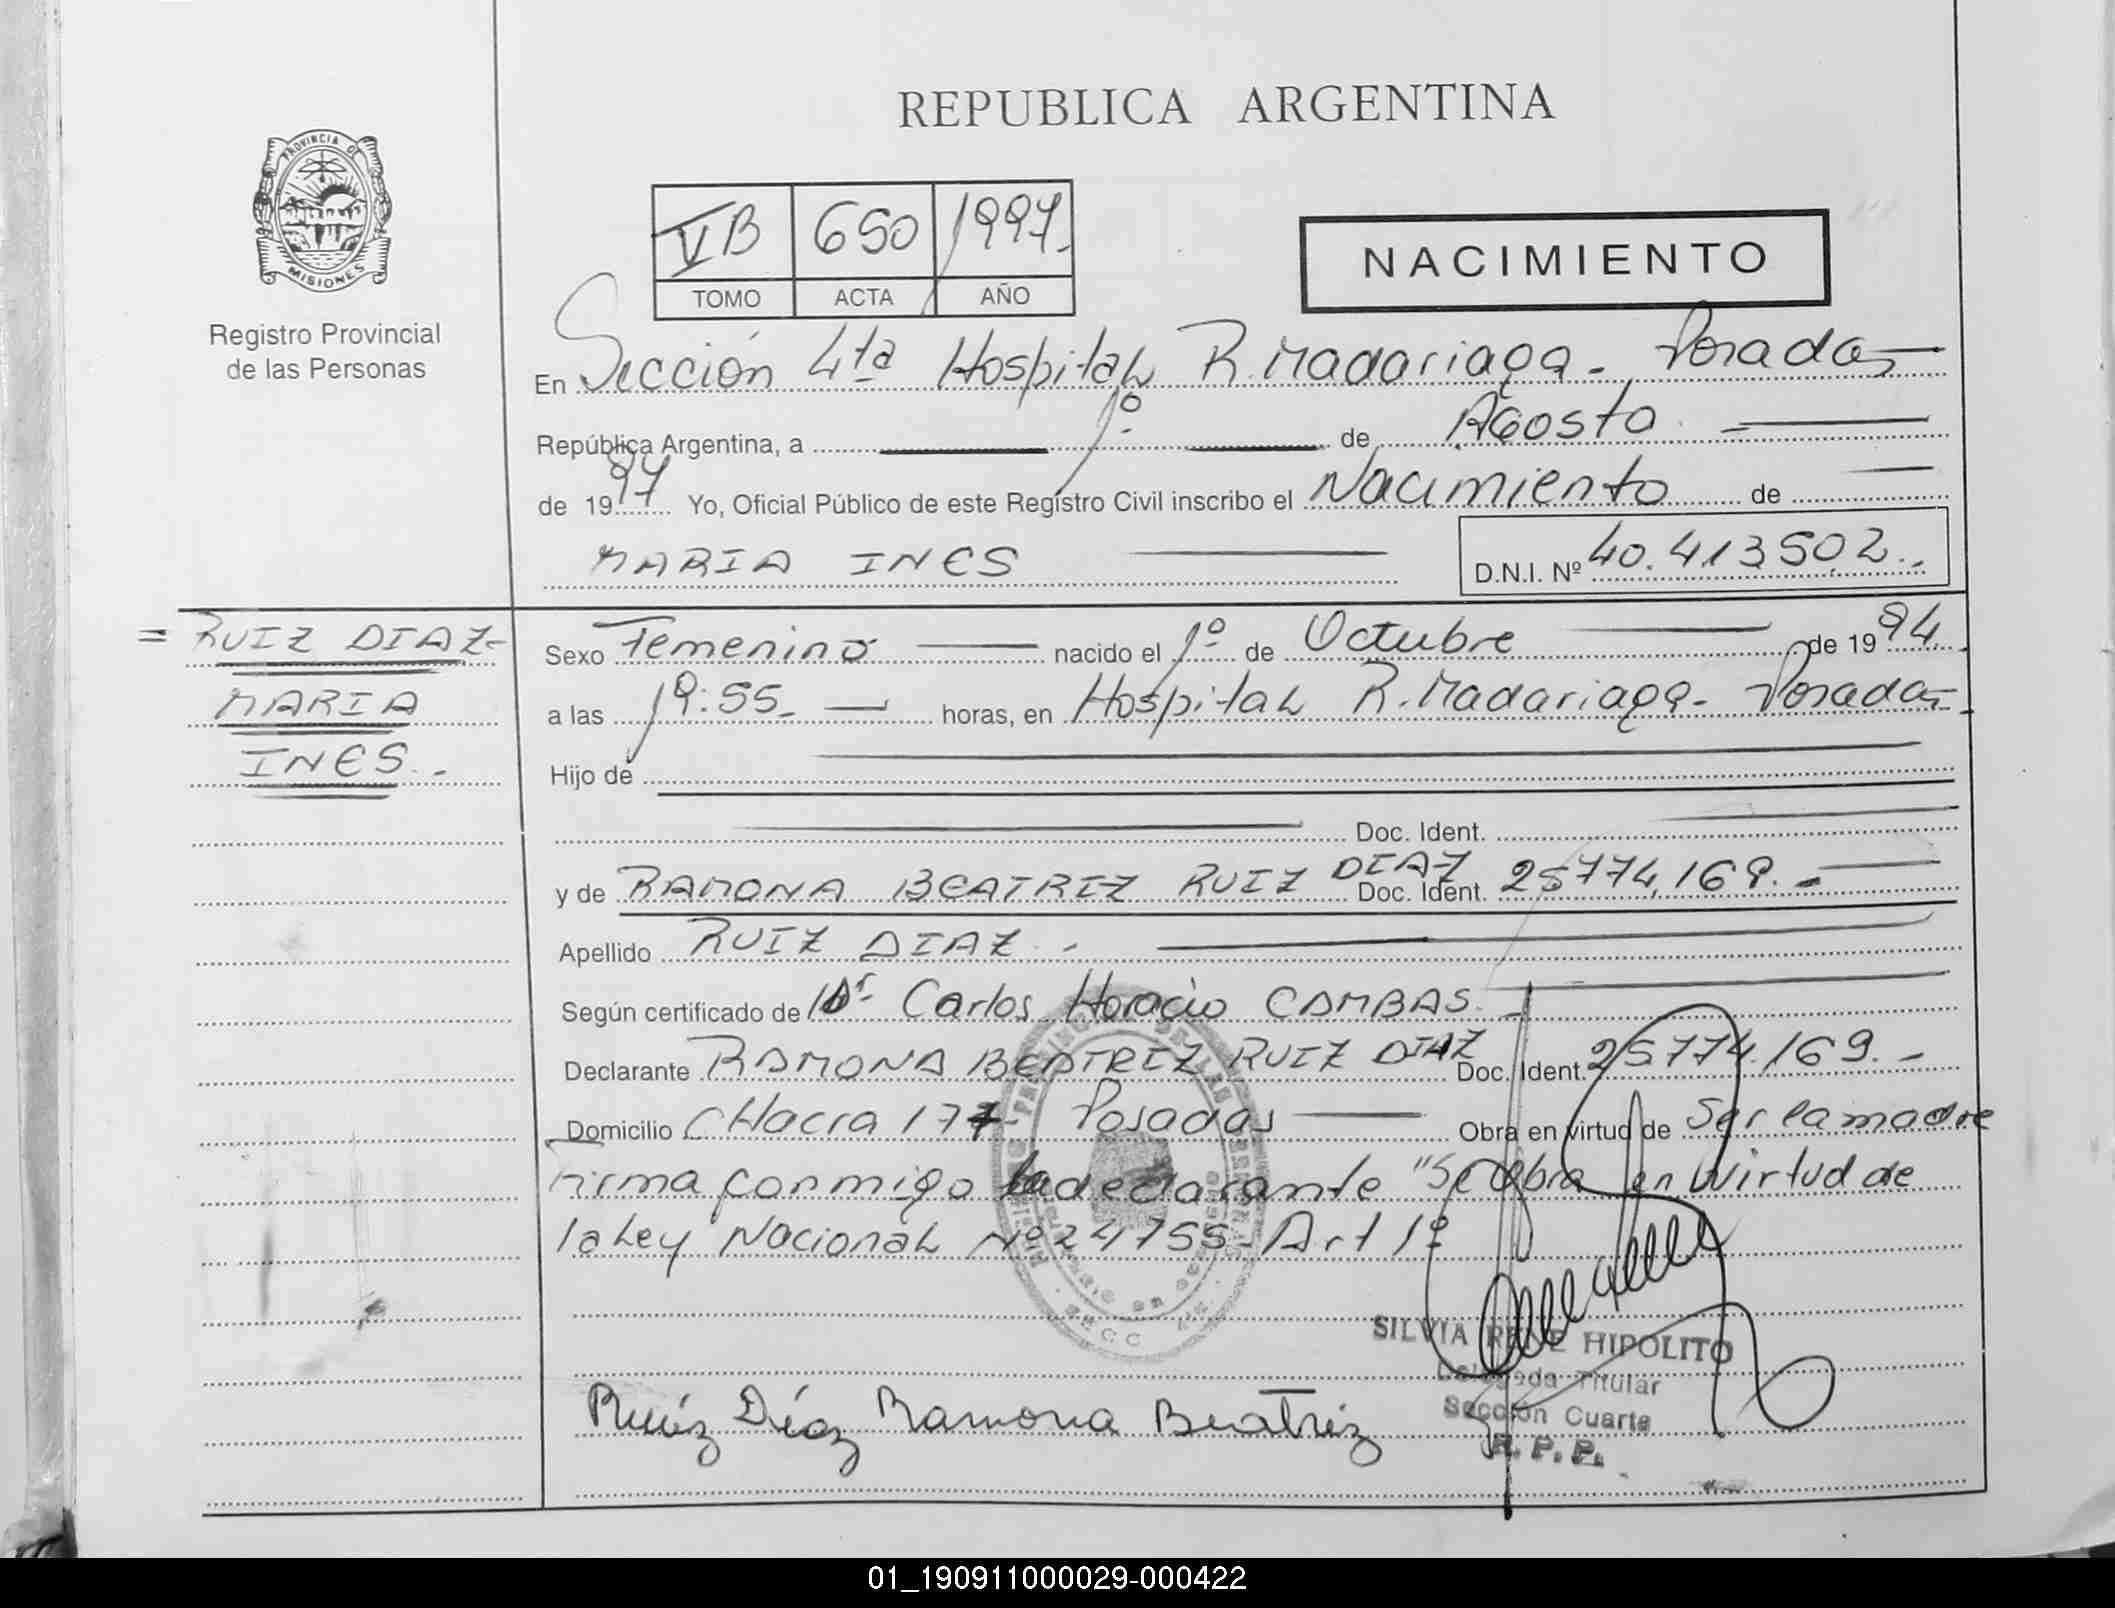 REPUBLICA ARGENTINA
PROVINCIA DE
MISIONES
Registro Provincial
de las Personas
VB 650 1997
TOMO ACTA AÑO
NACIMIENTO
En Sección 4ta Hospital R. Madariaga - Posadas
República Argentina, a 1º de Agosto
de 1997 Yo, Oficial Público de este Registro Civil inscribo el Nacimiento de
MARIA INES D.N.I. Nº 40.413502.-
= RUIZ DIAZ-
MARIA
INES.-
Sexo Femenino nacido el 1º de Octubre de 1994.
a las 19:55 horas, en Hospital R. Madariaga - Posadas-
Hijo de
Doc. Ident.
y de RAMONA BEATRIZ RUIZ DIAZ Doc. Ident. 25774.169.-
Apellido RUIZ DIAZ.-
Según certificado de Dr. Carlos Horacio CAMBAS.-
Declarante RAMONA BEATRIZ RUIZ DIAZ Doc. Ident. 25774.169.-
Domicilio CHacra 177- Posadas Obra en virtud de Ser la madre
Firma conmigo la declarante "Se obra en Wirtud de
la Ley Nacional Nº 24755- Art 1º
SILVIA RENE HIPOLITO
Delegada Titular
Sección Cuarta
R. P. P.
Ruíz Díaz Ramona Beatríz
01_190911000029-000422